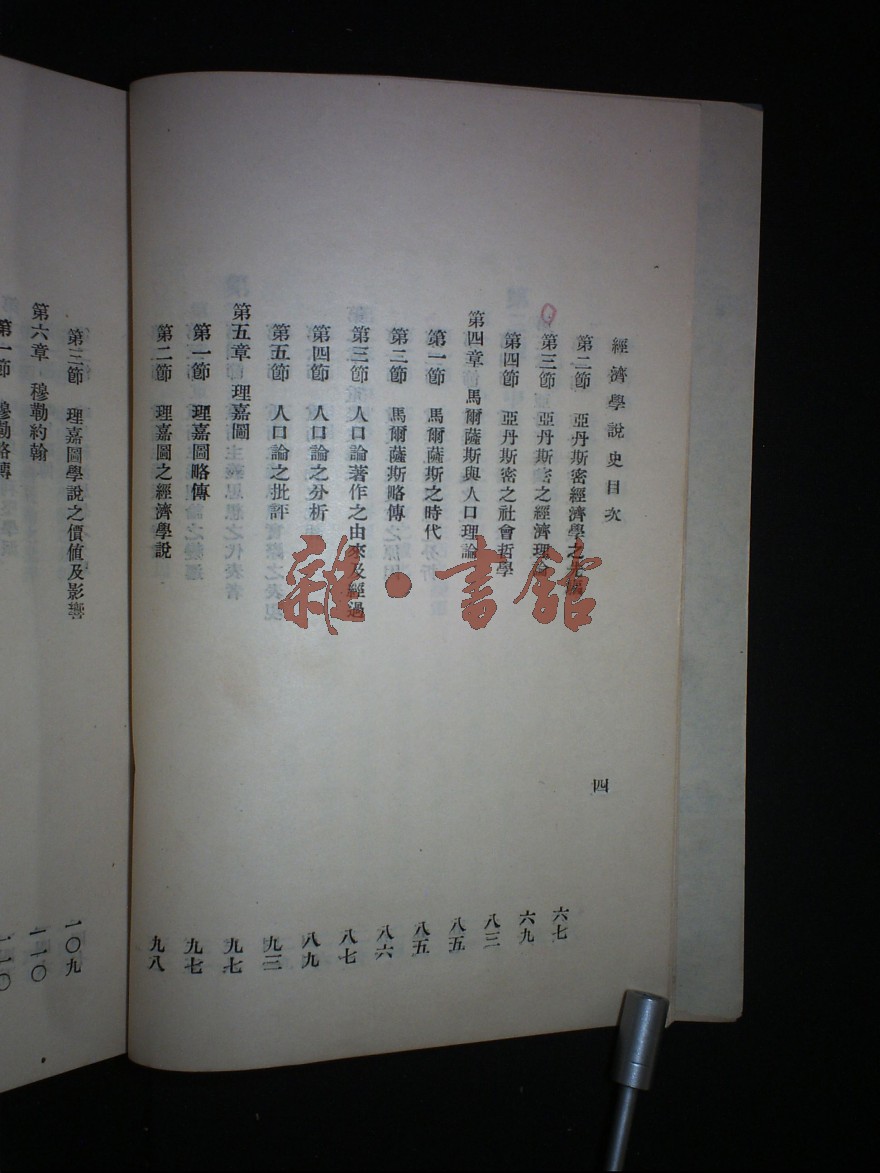 經濟學說史目次
四
第二節 亞丹斯密經濟學之 六七
第三節 亞丹斯密之經濟理論 六九
第四節 亞丹斯密之社會哲學 八三
第四章 馬爾薩斯與人口理論 八五
第一節 馬爾薩斯之時代 八五
第二節 馬爾薩斯略傳 八六
第三節 人口論著作之由來及經過 八七
第四節 人口論之分析 八九
第五節 人口論之批評 九三
第五章 理嘉圖 九七
第一節 理嘉圖略傳 九七
第二節 理嘉圖之經濟學說 九八
第三節 理嘉圖學說之價值及影響 一〇九
第六章 穆勒約翰 一一〇
第一節 穆勒略傳 一一〇
雜·書館